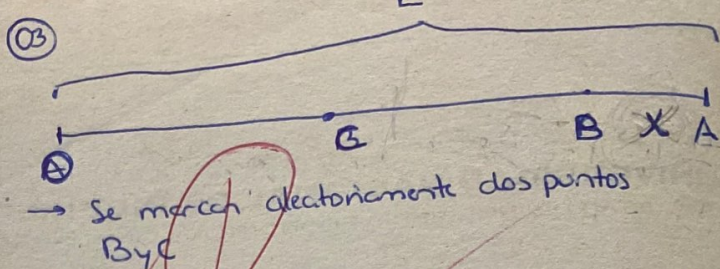 03
C B X A
A
→ Se marcan aleatoriamente dos puntos
B y C